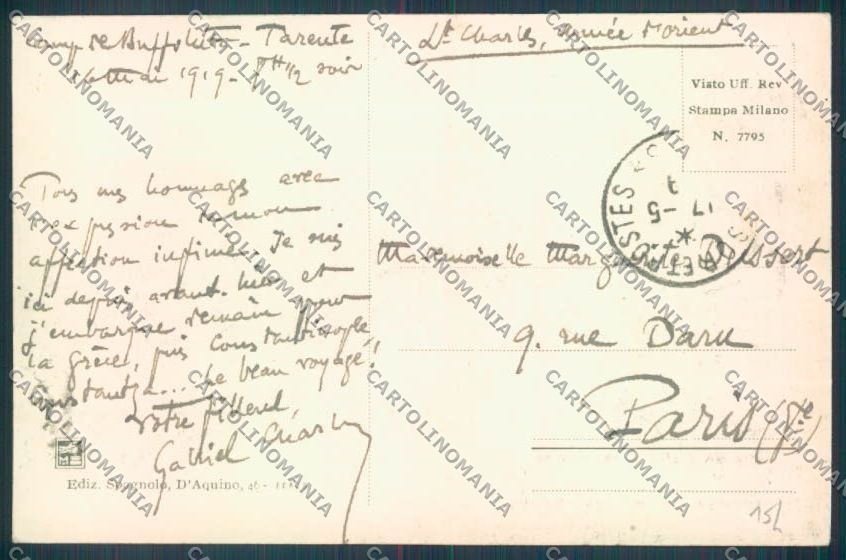 Camp de Buffoluto - Tarente
16 Mai 1919 - 7H 1/2 soir
Tous mes hommages avec
l'expression de mon
affection infinie. Je suis
ici depuis avant-hier et
j'embarque demain pour
la Grèce, puis Constantinople,
Constantza... Le beau voyage!
Votre filleul,
Gabriel Charles
Ediz. Spagnolo, D'Aquino, 46 -
Lt Charles, Armée d'Orient
Visto Uff. Rev
Stampa Milano
N. 7795
POSTES
17 - 5
Mademoiselle Marguerite
9. rue Daru
Paris (8e)
15L
CARTOLINOMANIA